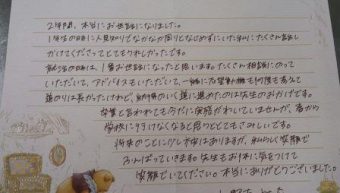 2年間、本当にお世話になりました。
1年生の時に人見知りでなかなか周りとなじめずにいた私にたくさん話し
かけてくださってとてもうれしかったです。
の時は、1番お世話になったと思います。たくさん相談にのって
いただいて、アドバイスもいただいて、一緒に志望動機も何度も考えて
道のりは長かったけれど、の道に進めたのは先生のおかげです。
卒業と言われてもまだに実感がわいていませんが、春から
学校に行けなくなると思うととてもさみしいです。
将来のことに少し不安はありますが、私らしく笑顔で
がんばっていきます。先生もお体に気をつけて
笑顔でいてください。本当にありがとうございました。